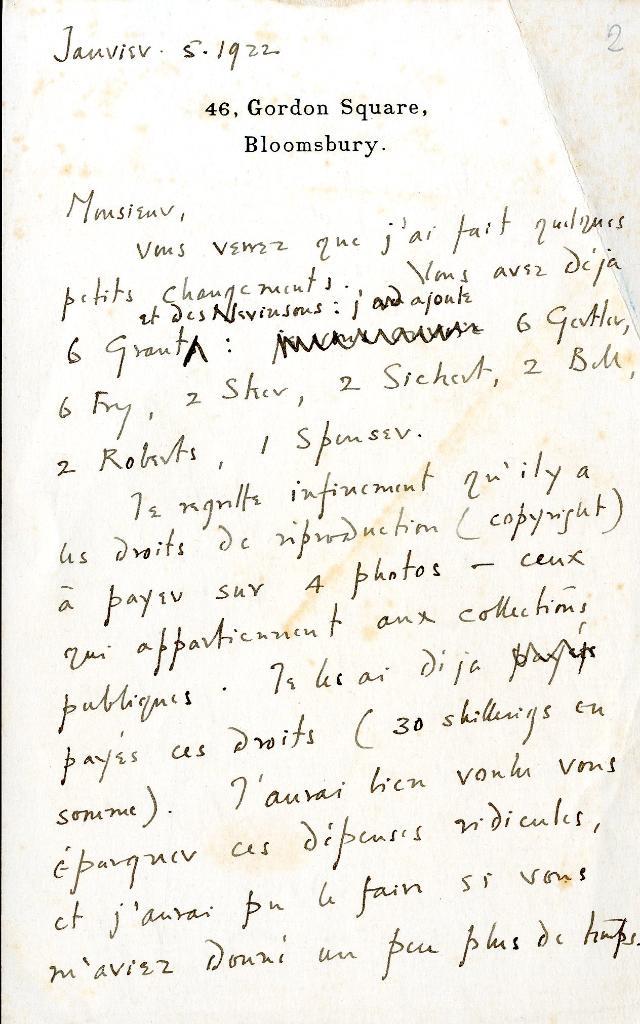 2
Janvier. 5. 1922
46, Gordon Square,
Bloomsbury.
Monsieur,
Vous verrez que j'ai fait quelques
petits changements. Vous avez déjà
et des Nevinsons : j'ai ajouté
6 Grant : 6 Gertler,
6 Fry, 2 Steer, 2 Sickert, 2 Bell,
2 Roberts, 1 Spenser.
Je regrette infiniment qu'il y a
les droits de réproduction (copyright)
à payer sur 4 photos — ceux
qui appartiennent aux collections
publiques. Je les ai déja payés
payés ces droits (30 shillings en
somme). J'aurai bien voulu vous
éparguer ces dépenses ridicules,
et j'aurai pu le faire si vous
m'aviez donné un peu plus de temps.